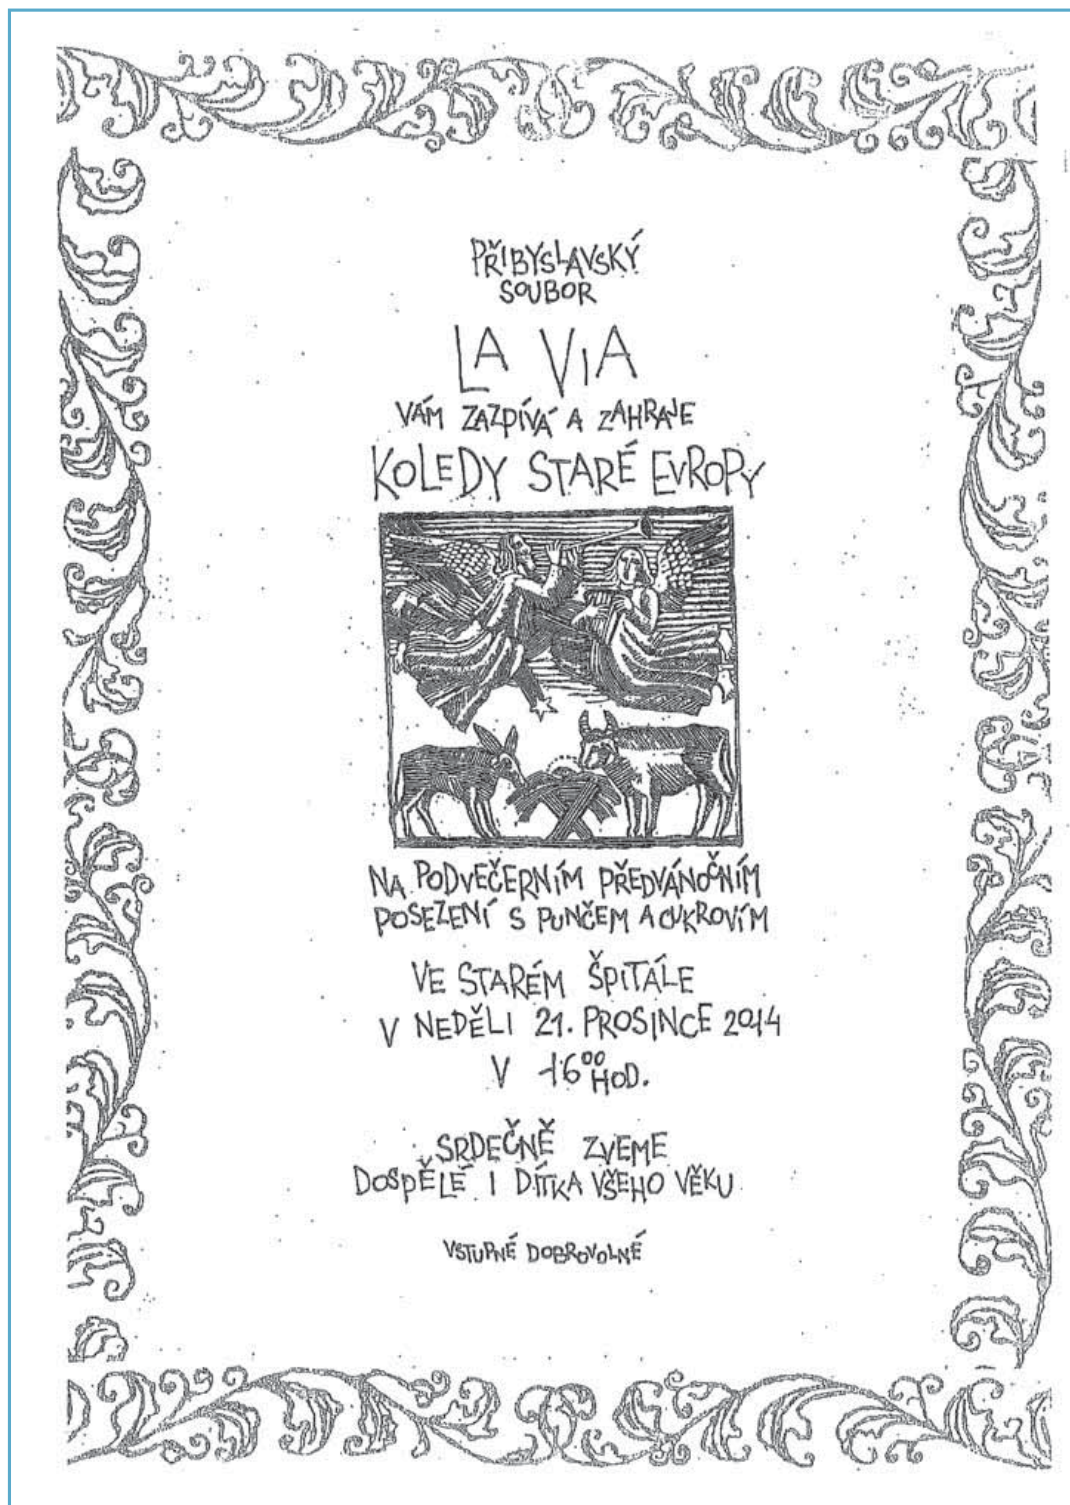 PŘIBYSLAVSKÝ
SOUBOR
LA VIA
VÁM ZAZPÍVÁ A ZAHRAJE
KOLEDY STARÉ EVROPY
NA PODVEČERNÍM PŘEDVÁNOČNÍM
POSEZENÍ S PUNČEM A CUKROVÍM
VE STARÉM ŠPITÁLE
V NEDĚLI 21. PROSINCE 2014
V 16⁰⁰ HOD.
SRDEČNĚ ZVEME
DOSPĚLÉ I DÍTKA VŠEHO VĚKU
VSTUPNÉ DOBROVOLNÉ